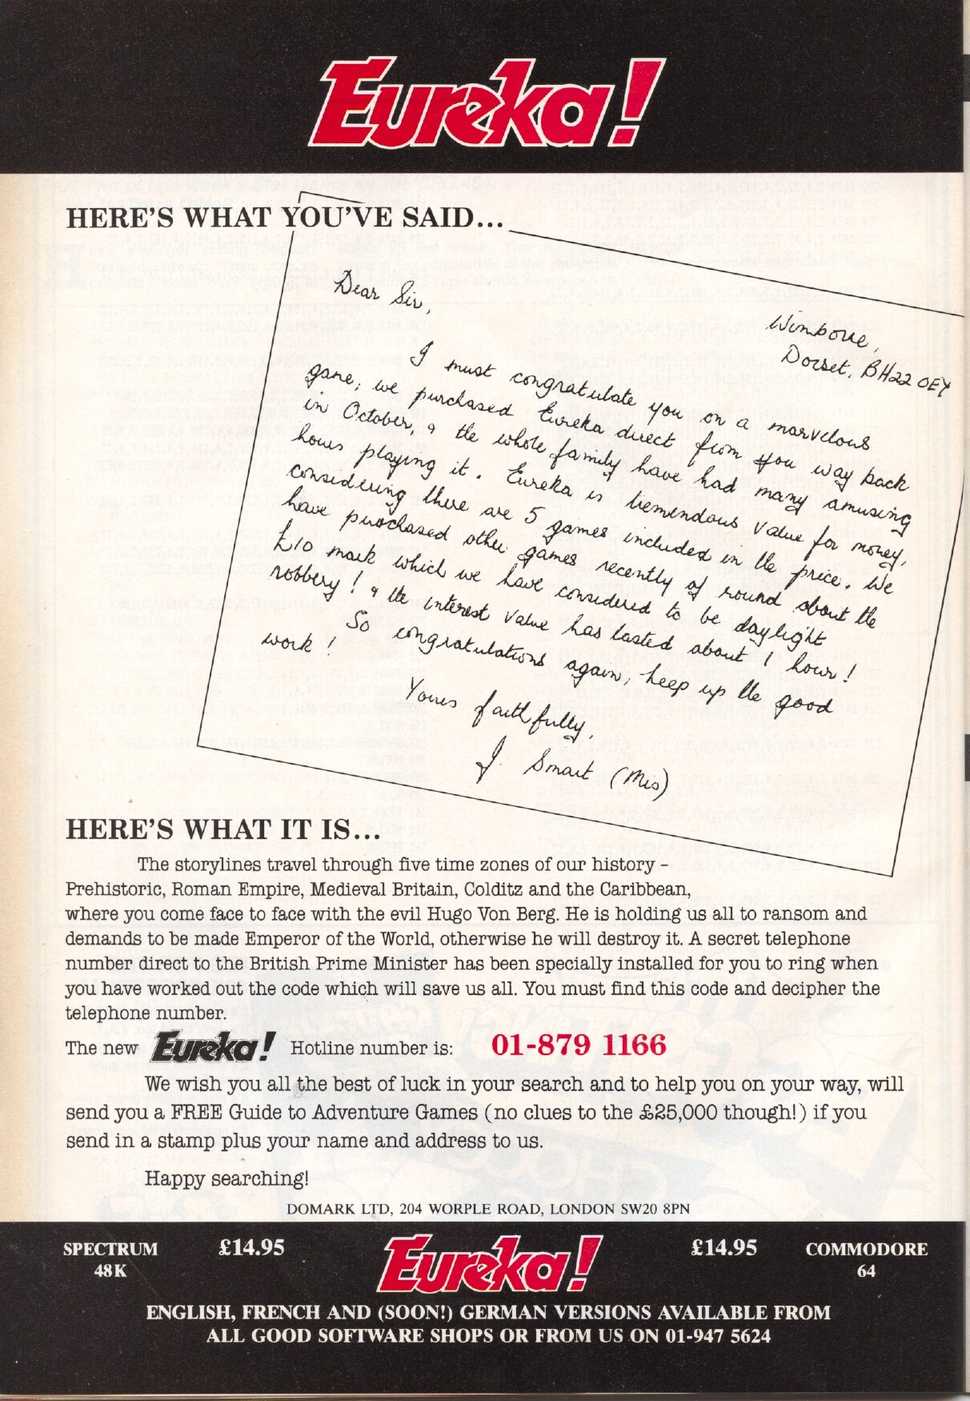 Eureka!
HERE'S WHAT YOU'VE SAID...
Dear Sir,
Wimborne,
Dorset, BH22 0EY
I must congratulate you on a marvelous
game; we purchased Eureka direct from you way back
in October, & the whole family have had many amusing
hours playing it. Eureka is tremendous value for money,
considering there are 5 games included in the price. We
have purchased other games recently of round about the
£10 mark which we have considered to be daylight
robbery! & the interest value has lasted about 1 hour!
So congratulations again, keep up the good
work!
Yours faithfully,
J. Smart (Mrs)
HERE'S WHAT IT IS...
The storylines travel through five time zones of our history –
Prehistoric, Roman Empire, Medieval Britain, Colditz and the Caribbean,
where you come face to face with the evil Hugo Von Berg. He is holding us all to ransom and
demands to be made Emperor of the World, otherwise he will destroy it. A secret telephone
number direct to the British Prime Minister has been specially installed for you to ring when
you have worked out the code which will save us all. You must find this code and decipher the
telephone number.
The new Eureka! Hotline number is: 01-879 1166
We wish you all the best of luck in your search and to help you on your way, will
send you a FREE Guide to Adventure Games (no clues to the £25,000 though!) if you
send in a stamp plus your name and address to us.
Happy searching!
DOMARK LTD, 204 WORPLE ROAD, LONDON SW20 8PN
SPECTRUM
48K
£14.95
Eureka!
£14.95
COMMODORE
64
ENGLISH, FRENCH AND (SOON!) GERMAN VERSIONS AVAILABLE FROM
ALL GOOD SOFTWARE SHOPS OR FROM US ON 01-947 5624